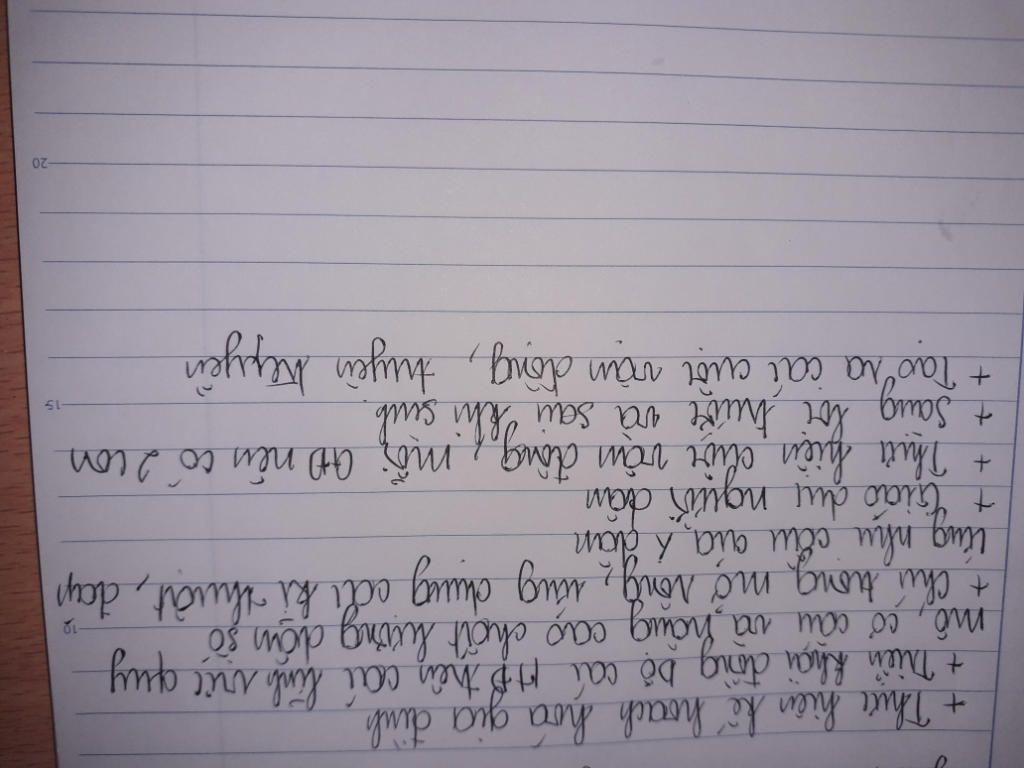 + Thực hiện kế hoạch hóa gia đình
+ Triển khai đồng bộ các HĐ trên các lĩnh vực quy
mô, cơ cấu và nâng cao chất lượng dân số
+ Chú trọng mở rộng, ứng dụng các kĩ thuật, đáp
ứng nhu cầu của x dân
+ Giáo dục người dân
+ Thực hiện cuộc vận động, mỗi GĐ nên có 2 con
+ Sàng lọc trước và sau khi sinh.
+ Tạo ra các cuộc vận động, tuyên truyền
10
15
20